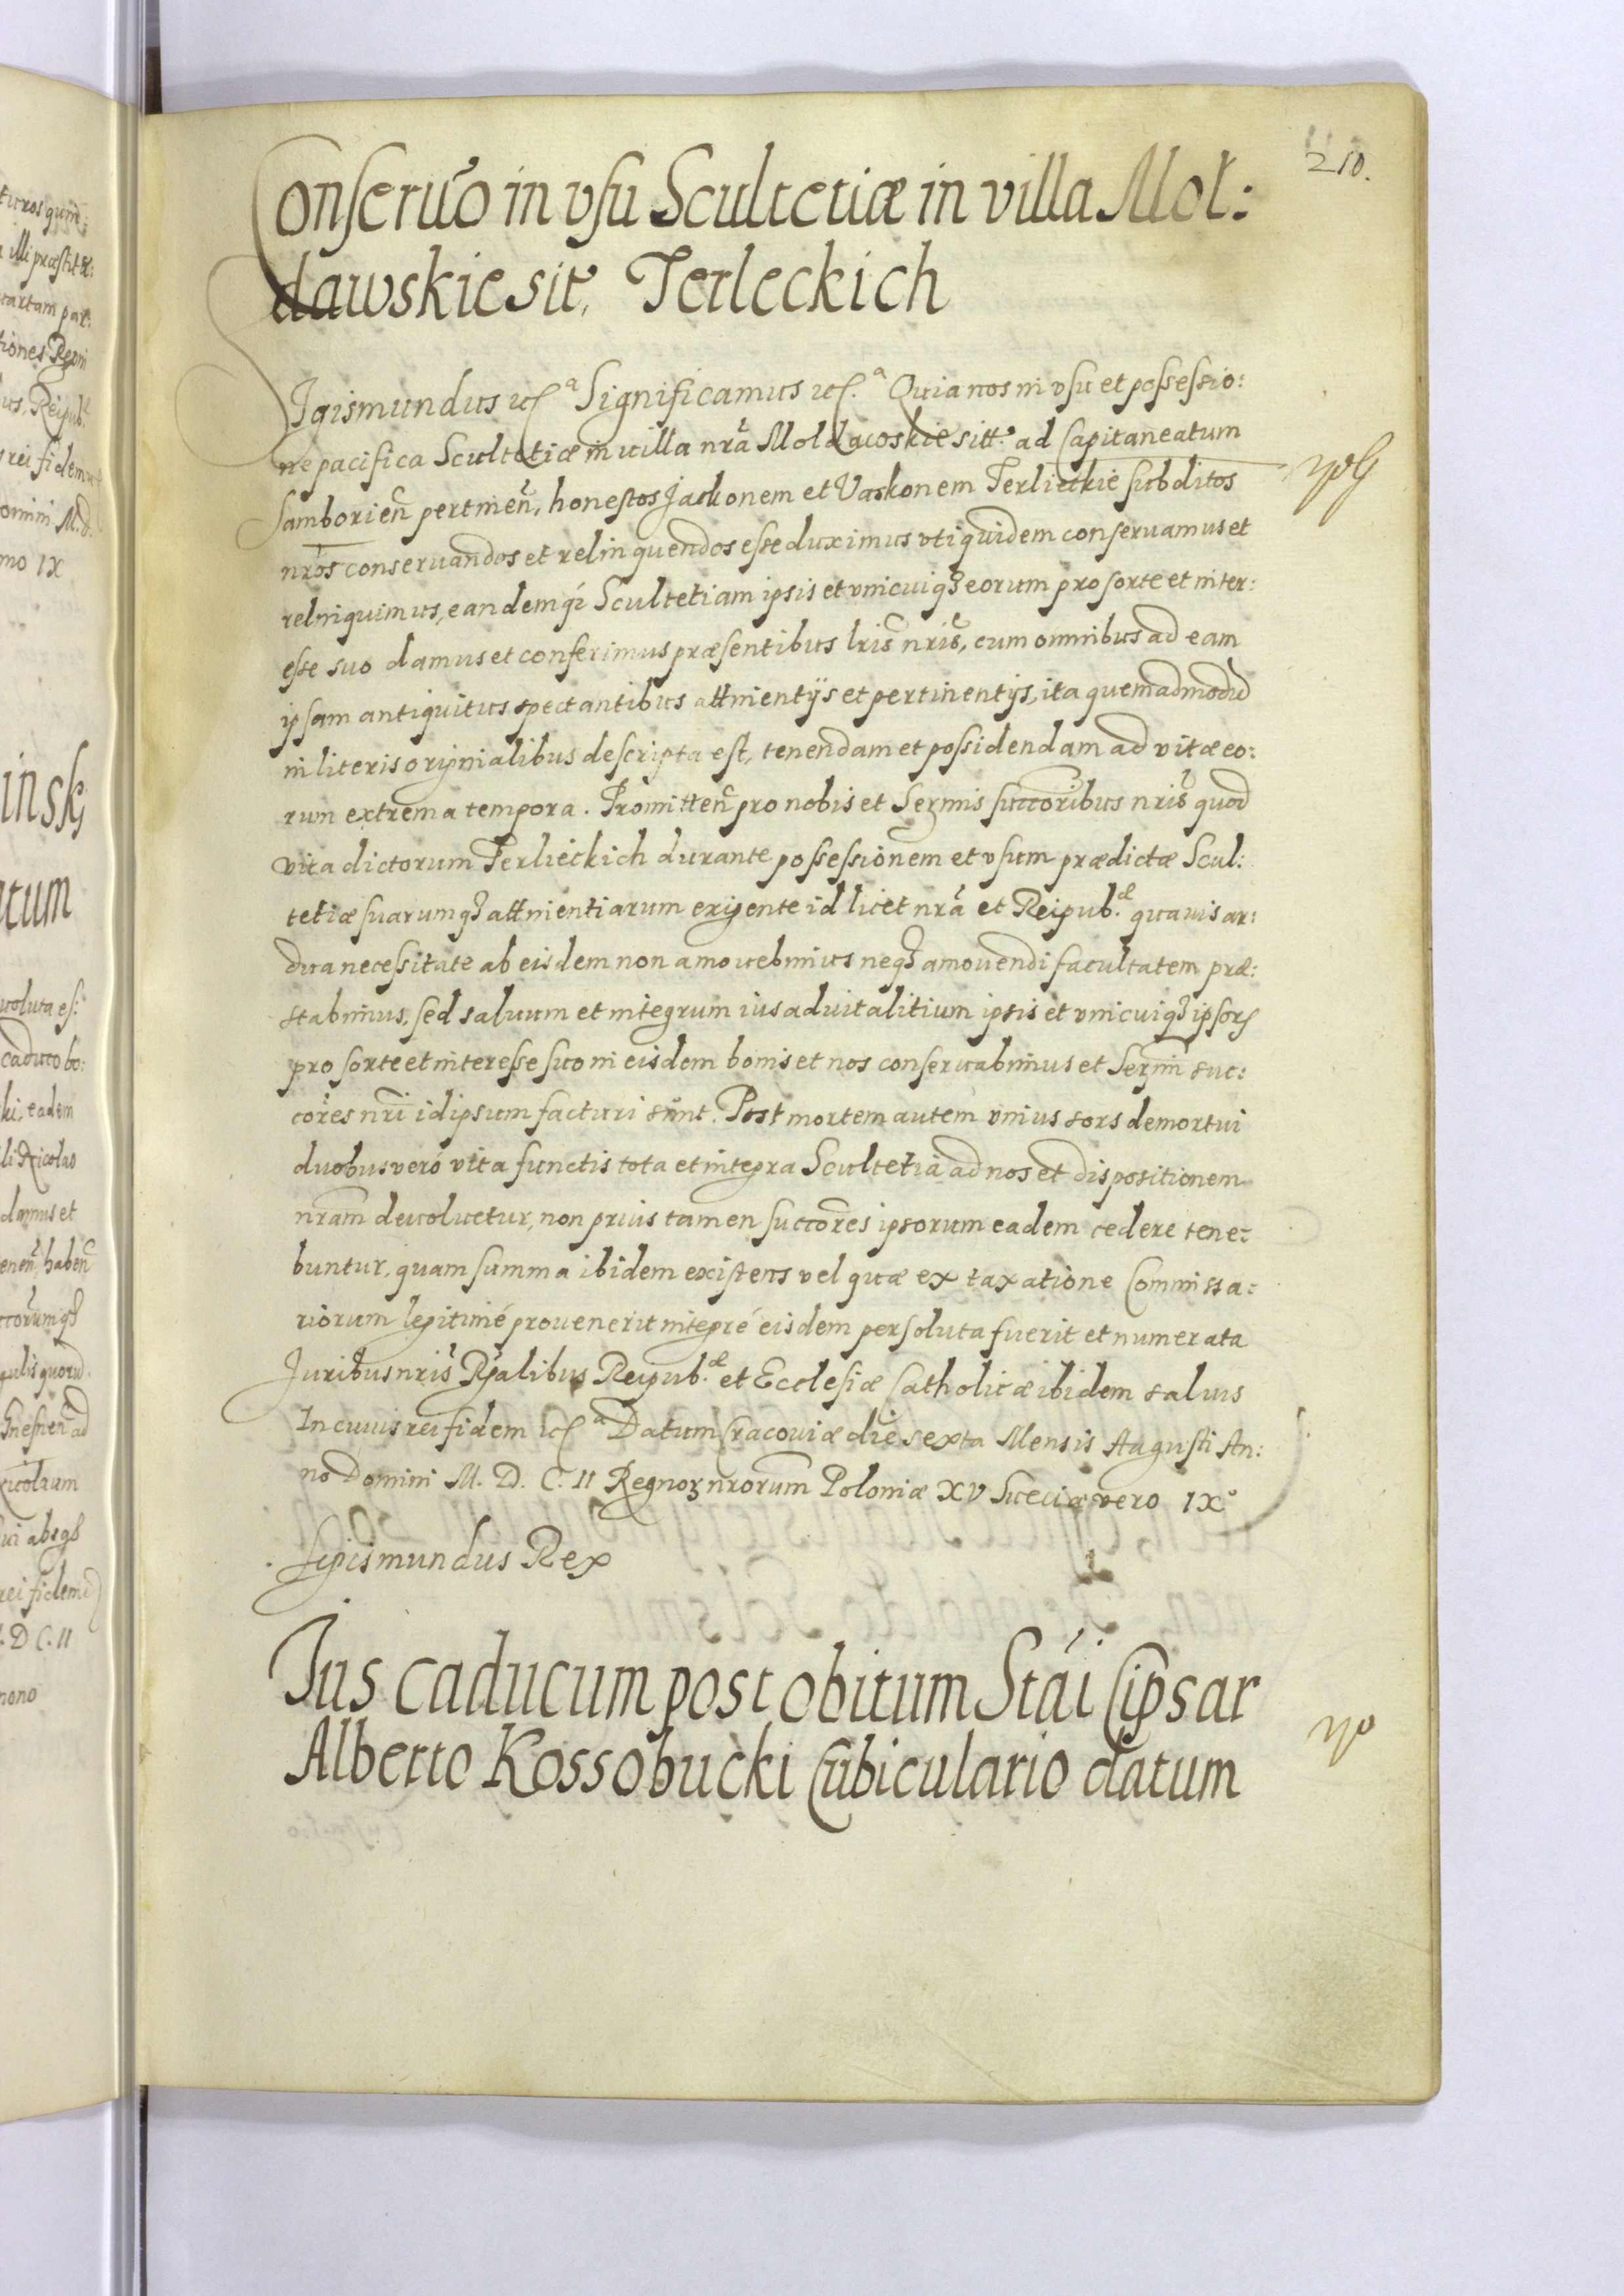 210.
Conseruō in vsu Scultetiæ in villa Mol:
dawskie sit, Terleckich
Sigismundus etc.ª Significamus etc.ª Quia nos in vsu et possessio:
ne pacifica Scultetiæ in uilla nrã Moldawskie sitt.ª ad Capitaneatum
Samborien̄ pertinen̄, honestos Jackonem et Vaskonem Terlieckie subditos
nr̄os conseruandos et relinquendos esse duximus vti quidem conseruamus et
relinquimus, eandemq́ Scultetiam ipsis et vnicuiqȝ eorum pro sorte et inter:
esse suo damus et conferimus præsentibus lris̄ nris̄, cum omnibus ad eam
ipsam antiquitus spectantibus attinentijs et pertinentijs, ita quemadmodū
in literis originalibus descripta est, tenendam et possidendam ad vitæ eo:
rum extrema tempora. Promitten̄ pro nobis et Serm̄is succoribus nris̄ quod
vita dictorum Terlieckich durante possessionem et vsum prædictæ Scul:
tetiæ suarumqȝ attinentiarum exigente id licet nrã et Reipub.æ quauis ar:
dua necessitate ab eisdem non amouebimus neqȝ amouendi facultatem præ:
stabimus, sed saluum et integrum ius aduitalitium ipsis et vnicuiqȝ ipsorʒ
pro sorte et interesse suo in eisdem bonis et nos conseruabimus et Serm̄i suc:
cores nrī idipsum facturi sunt. Post mortem autem vnius sors demortui
duobus veró vita functis tota et integra Scultetia ad nos et dispositionem
nram̄ deuoluetur, non prius tamen succores ipsorum eadem cedere tene:
buntur, quam summa ibidem existens vel quæ ex taxatione Commissa:
riorum legitimé prouenerit integré eisdem persoluta fuerit et numerata
Juribus nris̄ R̄galibus Reipub.æ et Ecclesiæ Catholicæ ibidem saluis
In cuius rei fidem etc.ª Datum Cracouiæ die sexta Mensis Augusti An:
no Domini M. D. C. II Regnoȝ nrorum Poloniæ XV Sueciæ vero IX°
Sigismundus Rex
Jus caducum post obitum Stái Cipsar
Alberto Kossobucki Cubiculario datum